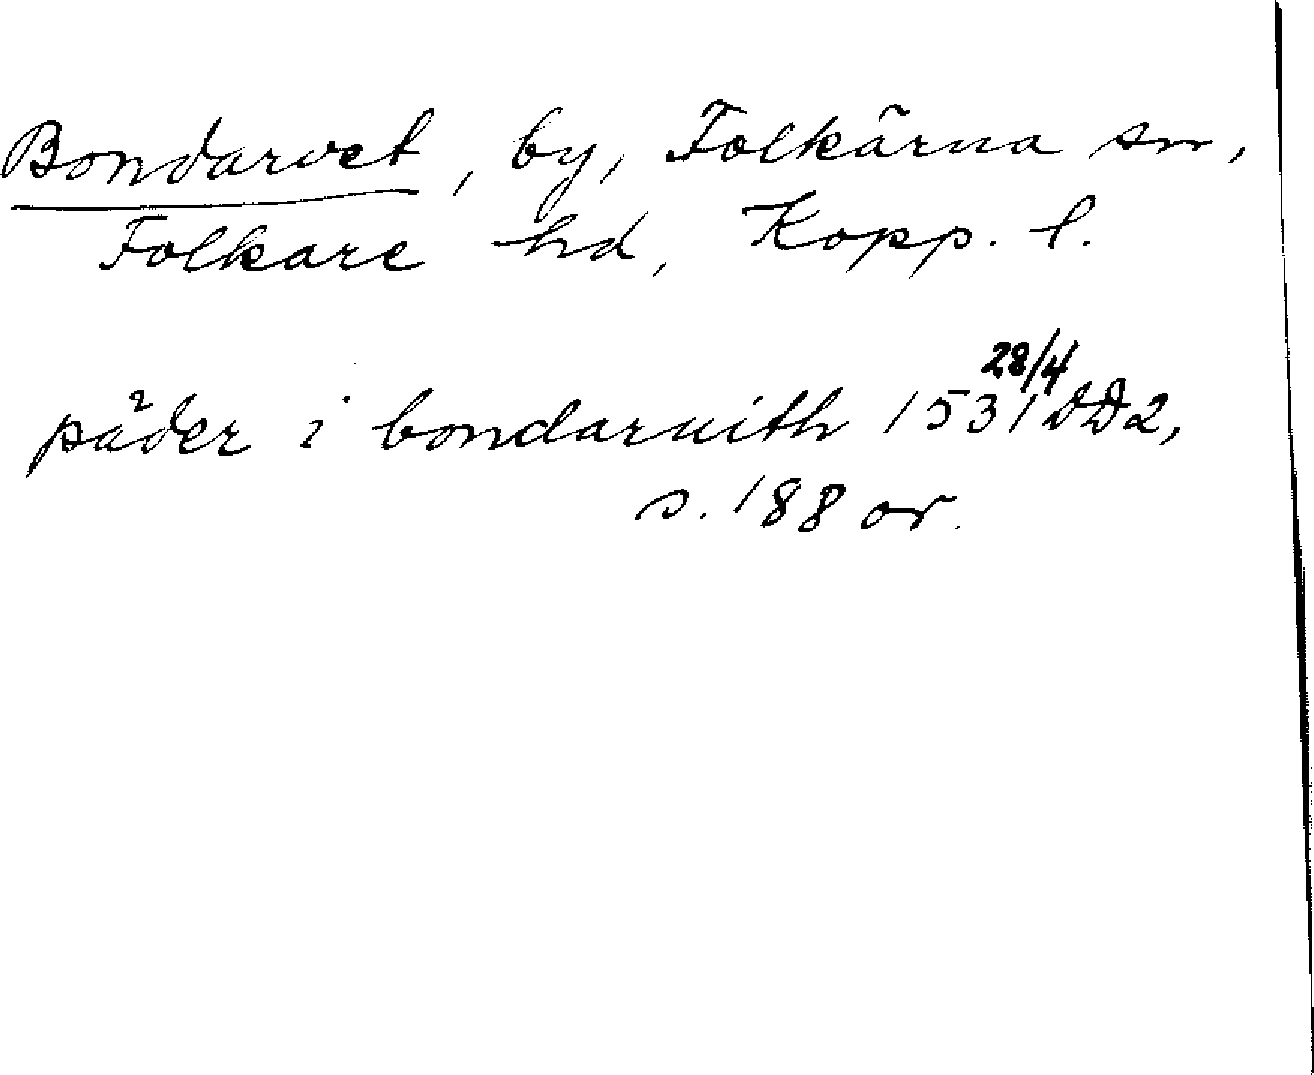 Bondarvet, by, Folkärna sn,
Folkare hd, Kopp. l.
28/4
påder i bondaruith 1531 DD2,
s. 188 or.